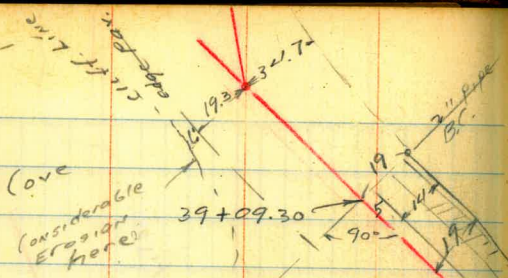 Cliff Line
edge Pav.
19.3
34.7
2" Pipe
B.C.
5
19
Cove
Considerable
Erosion
here
39+09.30
5
14
90°
19